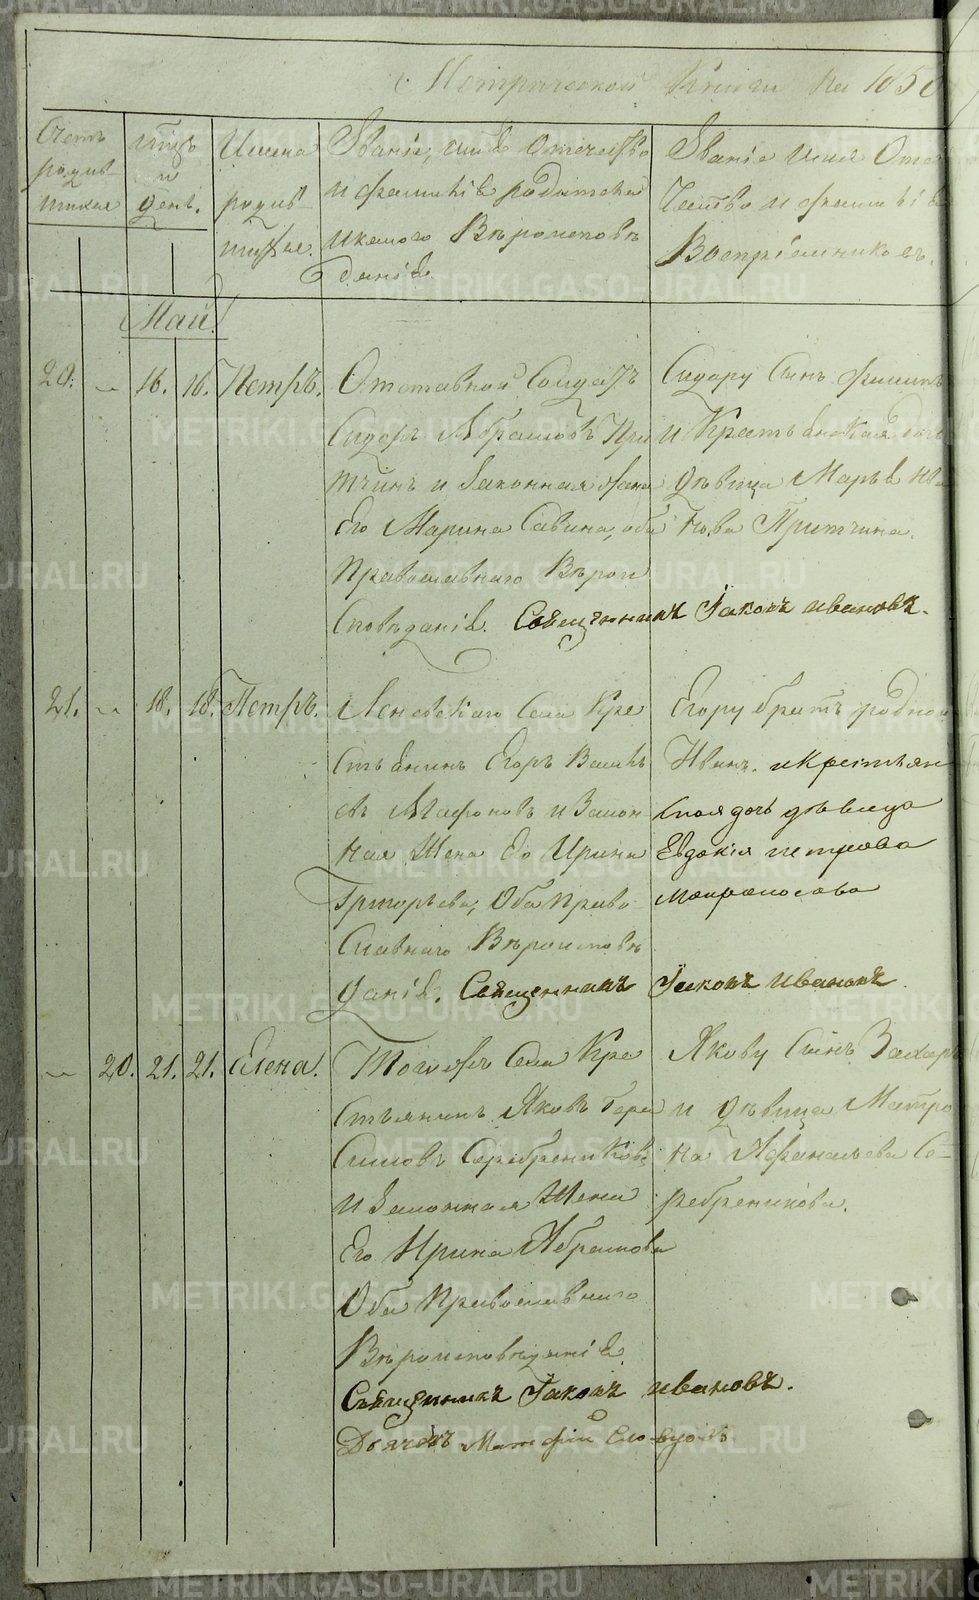 Метрической книги на 1850
Счетъ родив-шихся
Мѣсяцъ и день.
Имена родив-шихся.
Званіе, имя Отечество
и фамилія родителей
и какого Вѣроисповѣ
данія
Званіе имя Оте
чество и фамилія
Воспріемниковъ.
Май.
20. — 16. 16. Петръ.
Отставной Солдатъ
Сидоръ Абрамовъ При
тчинъ и Законная жена
Его Марина Савина, оба
Православнаго Вѣрои
сповѣданія. Священникъ Іаковъ Ивановъ.
Сидору Сынъ Филипъ
и Крестьянская дочь
дѣвица Марья Ива
нова Притчина.
21. — 18. 18. Петръ.
Села Кре
стьянинъ Егоръ Василь
евъ Агафоновъ и Закон
ная Жена Его Ирина
Григорьева, Оба Право
славнаго Вѣроисповѣ
данія. Священникъ Іаковъ Ивановъ.
Егору братъ родной
Иванъ. и крестьян
ская дочь дѣвица
Евдокія петрова
20. 21. 21. Елена.
Тогожъ Села Кре
стьянинъ Яковъ Гера
симовъ Серебрениковъ
и Законная Жена
Его Ирина Абрамова
Оба Православнаго
Вѣроисповѣданія
Священникъ Іаковъ Ивановъ.
Дьячекъ Матфій Словцовъ
Якову Сынъ Захаръ
и дѣвица Матро
на Афанасьева Се-
ребреникова.
METRIKI.GASO-URAL.RU